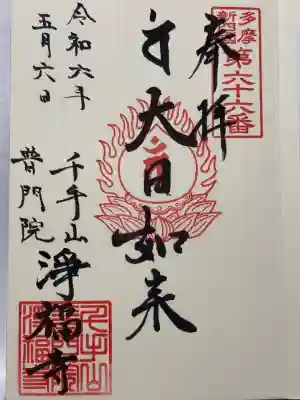 多摩
新四国
第六十六番
奉拝
大日如来
千手山
普門院
浄福寺
令和六年
五月六日